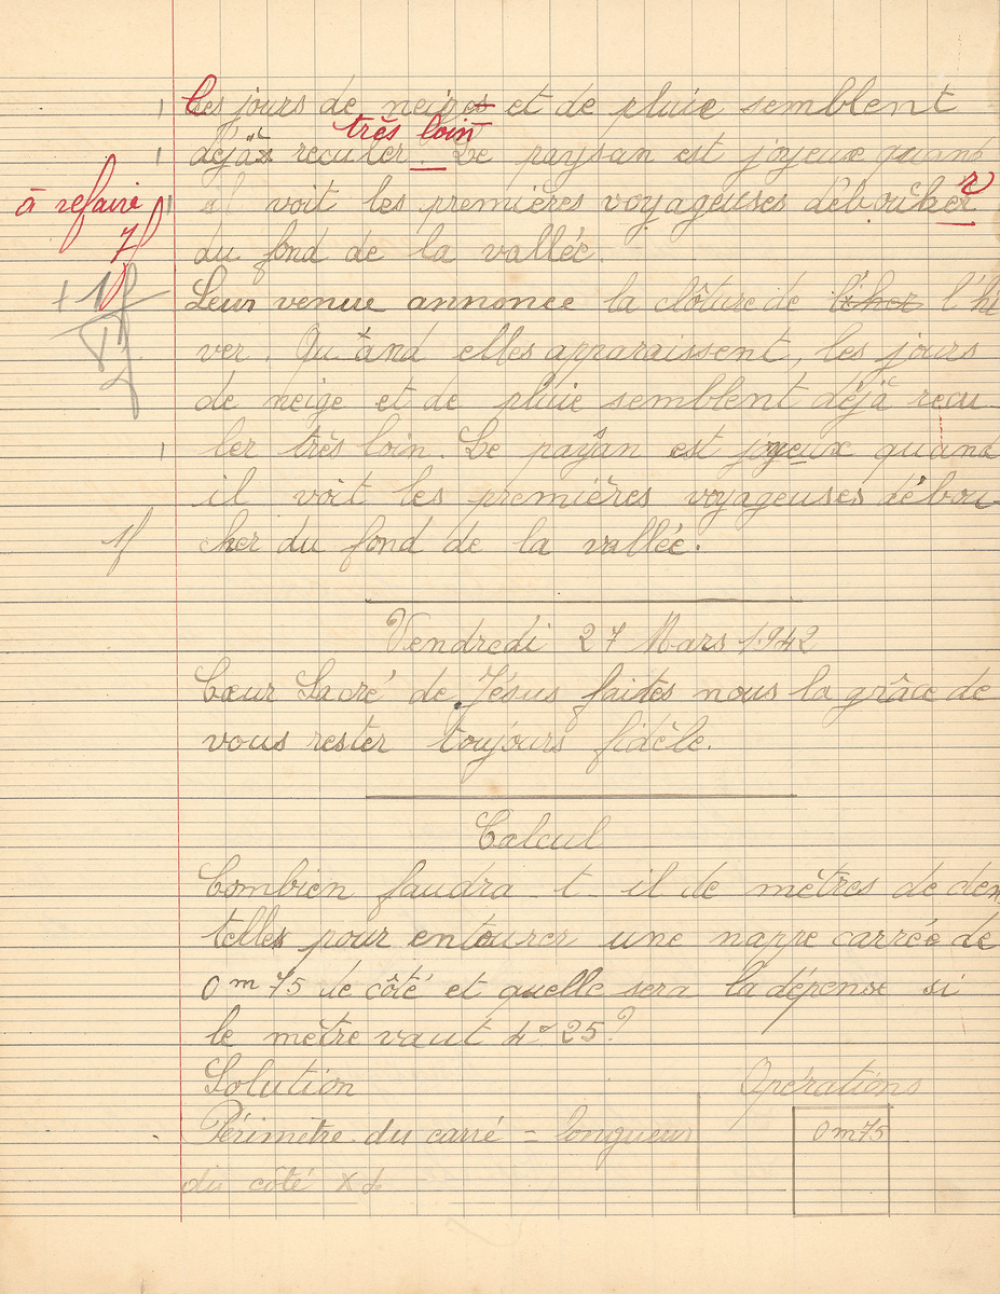 Les jours de neiges et de pluie semblent
très loin
déjà reculer. Le paysan est joyeux quand
à refaire il voit les premières voyageuses débouher r
7f du fond de la vallée.
+1f Leur venue annonce la clôture de l'her l'hi
ver. Quand elles apparaissent, les jours
de neige et de pluie semblent déjà recu
ler très loin. Le paysan est joyeux quand
il voit les premières voyageuses débou
1f cher du fond de la vallée.
Vendredi 27 Mars 1942
Cœur Sacré de Jésus faites nous la grâce de
vous rester toujours fidèle.
Calcul
Combien faudra t il de mètres de den
telles pour entourer une nappe carrée de
0m75 de côté et quelle sera la dépense si
le mètre vaut 4F 25?
Solution Opérations
Périmètre du carré = longueur 0m75
du côté x 4